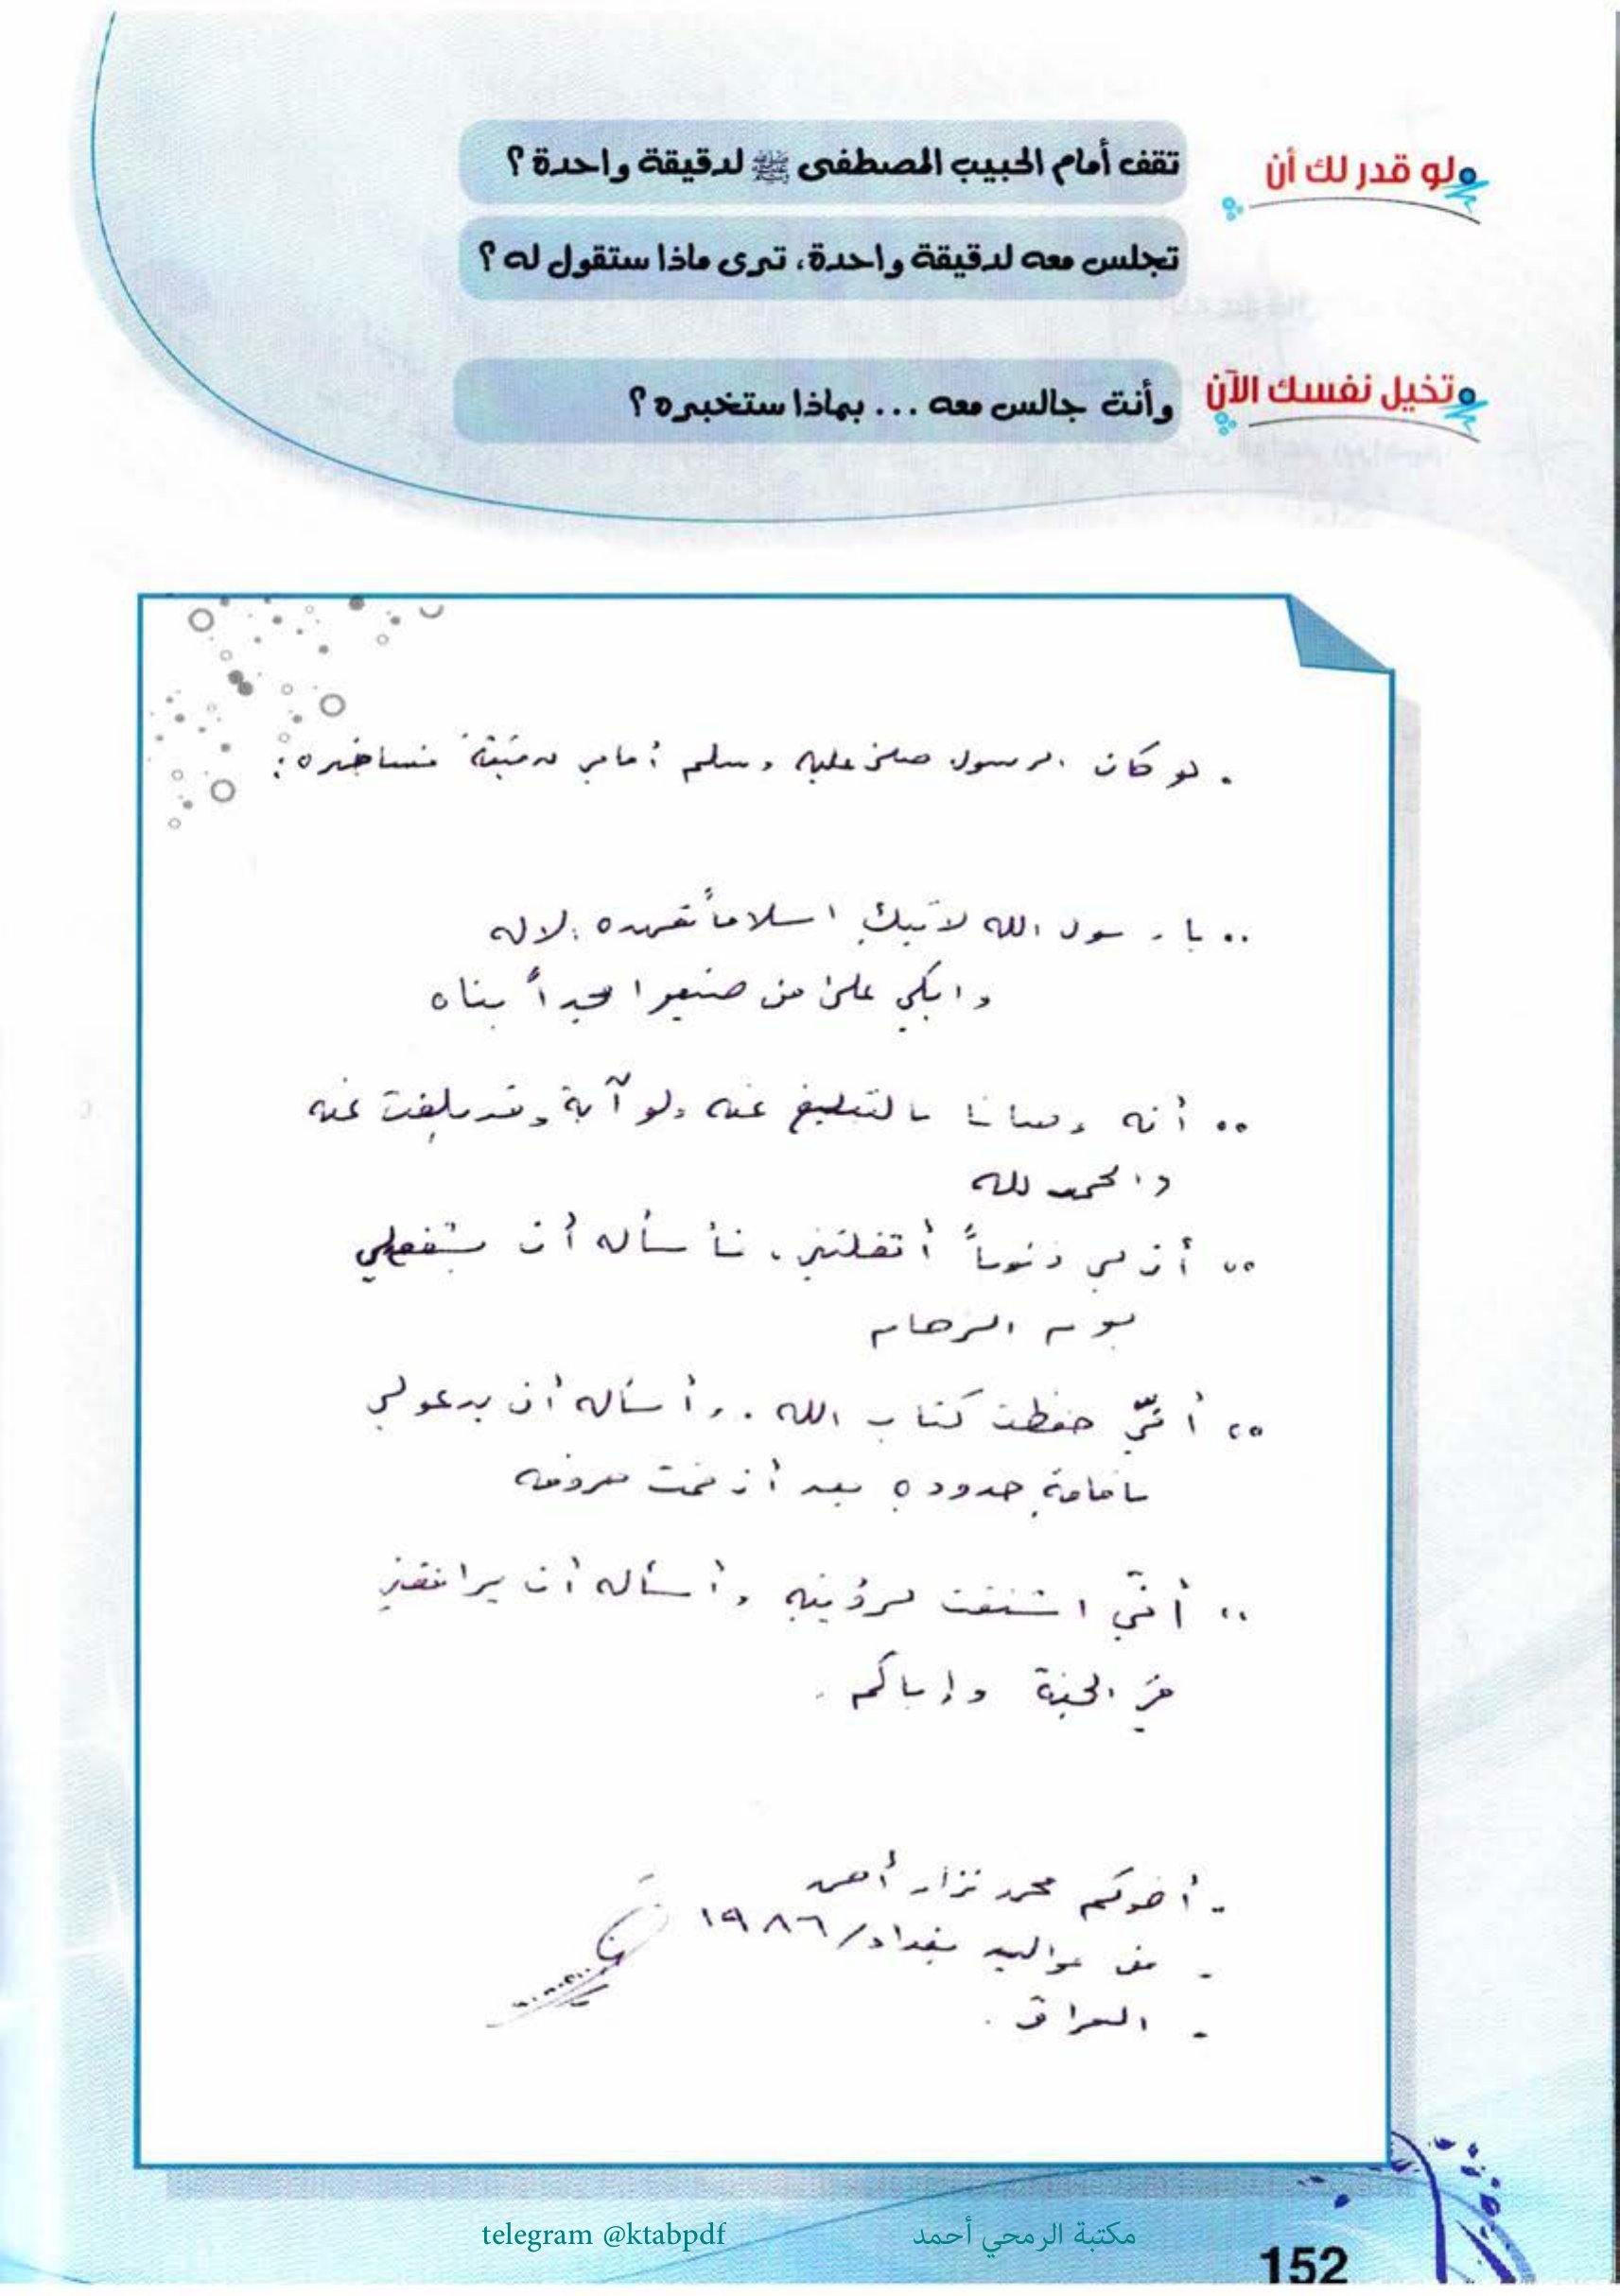 لو قدر لك أن تقف أمام الحبيب المصطفى ﷺ لدقيقة واحدة ؟
تجلس معه لدقيقة واحدة، ترى ماذا ستقول له ؟
تخيل نفسك الآن وأنت جالس معه ... بماذا ستخبره ؟
. لو كان الرسول صلى عليه وسلم أمامي لدقيقة فسأخبره :
.. يا رسول الله لا تبك اسلاماً الاله
وابكي على من ضيعوا مجداً بناه
.. أنه وصانا بالتبليغ عنه ولو آية وقد بلغت عنه
والحمد لله
.. أن لي ذنوباً أثقلتني . فأسأله أن يشفعلي
يوم الزحام
.. أنّي حفظت كتاب الله . وأسأله أن يدعو لي
باقامة حدوده بعد أن تمت حروفه
.. أنّي اشتقت لرؤيته وأسأله أن يرافقني
في الجنة وإياكم .
- أخوكم محمد نزار
- من مواليد بغداد / ١٩٨٦
- العراق .
telegram @ktabpdf مكتبة الرمحي أحمد
152